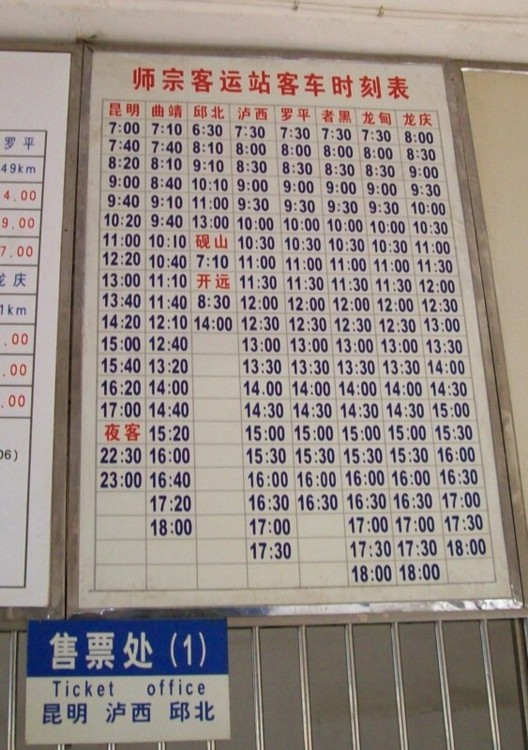 罗平
49km
4.00
9.00
7.00
龙庆
1km
.00
.00
.00
06)
师宗客运站客车时刻表
昆明 曲靖 邱北 泸西 罗平 者黑 龙甸 龙庆
7:00 7:10 6:30 7:30 7:30 7:30 7:30 8:00
7:40 7:40 8:10 8:00 8:00 8:00 8:00 8:30
8:20 8:10 9:10 8:30 8:30 8:30 8:30 9:00
9:00 8:40 10:10 9:00 9:00 9:00 9:00 9:30
9:40 9:10 11:00 9:30 9:30 9:30 9:30 10:00
10:20 9:40 13:00 10:00 10:00 10:00 10:00 10:30
11:00 10:10 砚山 10:30 10:30 10:30 10:30 11:00
12:20 10:40 7:10 11:00 11:00 11:00 11:00 11:30
13:00 11:10 开远 11:30 11:30 11:30 11:30 12:00
13:40 11:40 8:30 12:00 12:00 12:00 12:00 12:30
14:20 12:10 14:00 12:30 12:30 12:30 12:30 13:00
15:00 12:40 13:00 13:00 13:00 13:00 13:30
15:40 13:20 13:30 13:30 13:30 13:30 14:00
16:20 14:00 14.00 14:00 14:00 14:00 14:30
17:00 14:40 14:30 14:30 14:30 14:30 15:00
夜客 15:20 15:00 15:00 15:00 15:00 15:30
22:30 16:00 15:30 15:30 15:30 15:30 16:00
23:00 16:40 16:00 16:00 16:00 16:00 16:30
17:20 16:30 16:30 16:30 16:30 17:00
18:00 17:00 17:00 17:00 17:30
17:30 17:30 17:30 18:00
18:00 18:00
售票处(1)
Ticket office
昆明 泸西 邱北